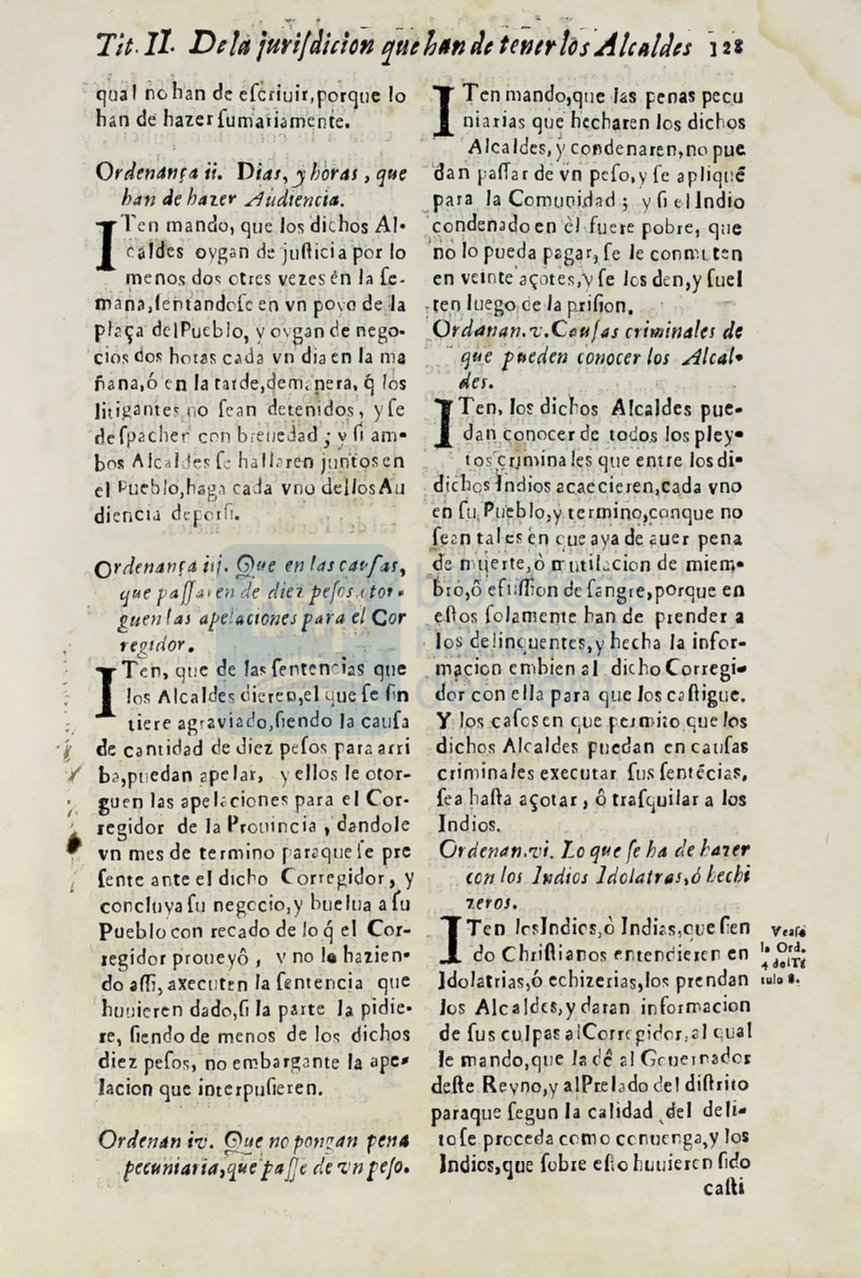 Tit. II. De la juriſdicion que han de tener los Alcaldes 128
qual no han de eſcriuir, porque lo
han de hazer ſumariamente.
Ordenança ii. Dias, y horas, que
han de hazer Audiencia.
ITen mando, que los dichos Al-
caldes oygan de juſticia por lo
menos dos otres vezes én la ſe-
mana, ſentandoſe en vn poyo de la
plaça delPueblo, y oygan de nego-
cios dos horas cada vn dia en la ma
ñana, ó en la tarde, demanera, q̃ los
litigantes no ſean detenidos, y ſe
deſpachen con breuedad; y ſi am-
bos Alcaldes ſe hallaren juntos en
el Pueblo, haga cada vno dellos Au
diencia deporſi.
Ordenança iij. Que en las cauſas,
que paſſaren de diez peſos, otor-
guen las apelaciones para el Cor
regidor.
ITen, que de las ſentencias que
los Alcaldes dieren, el que ſe ſin
tiere agraviado, ſiendo la cauſa
de cantidad de diez peſos para arri
ba, puedan apelar, y ellos le otor-
guen las apelaciones para el Cor-
regidor de la Prouincia, dandole
vn mes de termino paraque ſe pre
ſente ante el dicho Corregidor, y
concluya ſu negocio, y buelua a ſu
Pueblo con recado de lo q̃ el Cor-
regidor proueyô, y no lo hazien-
do aſſi, axecuten la ſentencia que
huuieren dado, ſi la parte la pidie-
re, ſiendo de menos de los dichos
diez peſos, no embargante la ape-
lacion que interpuſieren.
Ordenan iv. Que no pongan pena
pecuniaria, que paſſe de vn peſo.
ITen mando, que las penas pecu
niarias que hecharen los dichos
Alcaldes, y condenaren, no pue
dan paſſar de vn peſo, y ſe apliquẽ
para la Comunidad; y ſi el Indio
condenado en èl fuere pobre, que
no lo pueda pagar, ſe le conmuten
en veinte açotes, y ſe los den, y ſuel
ten luego de la priſion.
Ordanan. v. Cauſas criminales de
que pueden conocer los Alcal-
des.
ITen, los dichos Alcaldes pue-
dan conocer de todos los pley-
tos criminales que entre los di-
dichos Indios acaecieren, cada vno
en ſu Pueblo, y termino, conque no
ſean tales en que aya de auer pena
de muerte, ò mutilacion de miem-
bro, ô efuſſion de ſangre, porque en
eſtos ſolamente han de prender a
los delinquentes, y hecha la infor-
macion embien al dicho Corregi-
dor con ella para que los caſtigue.
Y los caſos en que permito que los
dichos Alcaldes puedan en cauſas
criminales executar ſus ſentẽcias,
ſea haſta açotar, ô traſquilar a los
Indios.
Ordenan. vi. Lo que ſe ha de hazer
con los Indios Idolatras, ó hechi
zeros.
ITen los Indios, ò Indias, que ſien
do Chriſtianos entendieren en
Idolatrias, ó echizerias, los prendan
los Alcaldes, y daran informacion
de ſus culpas al Corregidor, al qual
le mando, que la dé al Gouernador
deſte Reyno, y al Prelado del diſtrito
paraque ſegun la calidad del deli-
to ſe proceda como conuenga, y los
Indios, que ſobre eſto huuieren ſido
caſti
Veaſe
la Ord.
4 del Ti
tulo 8.